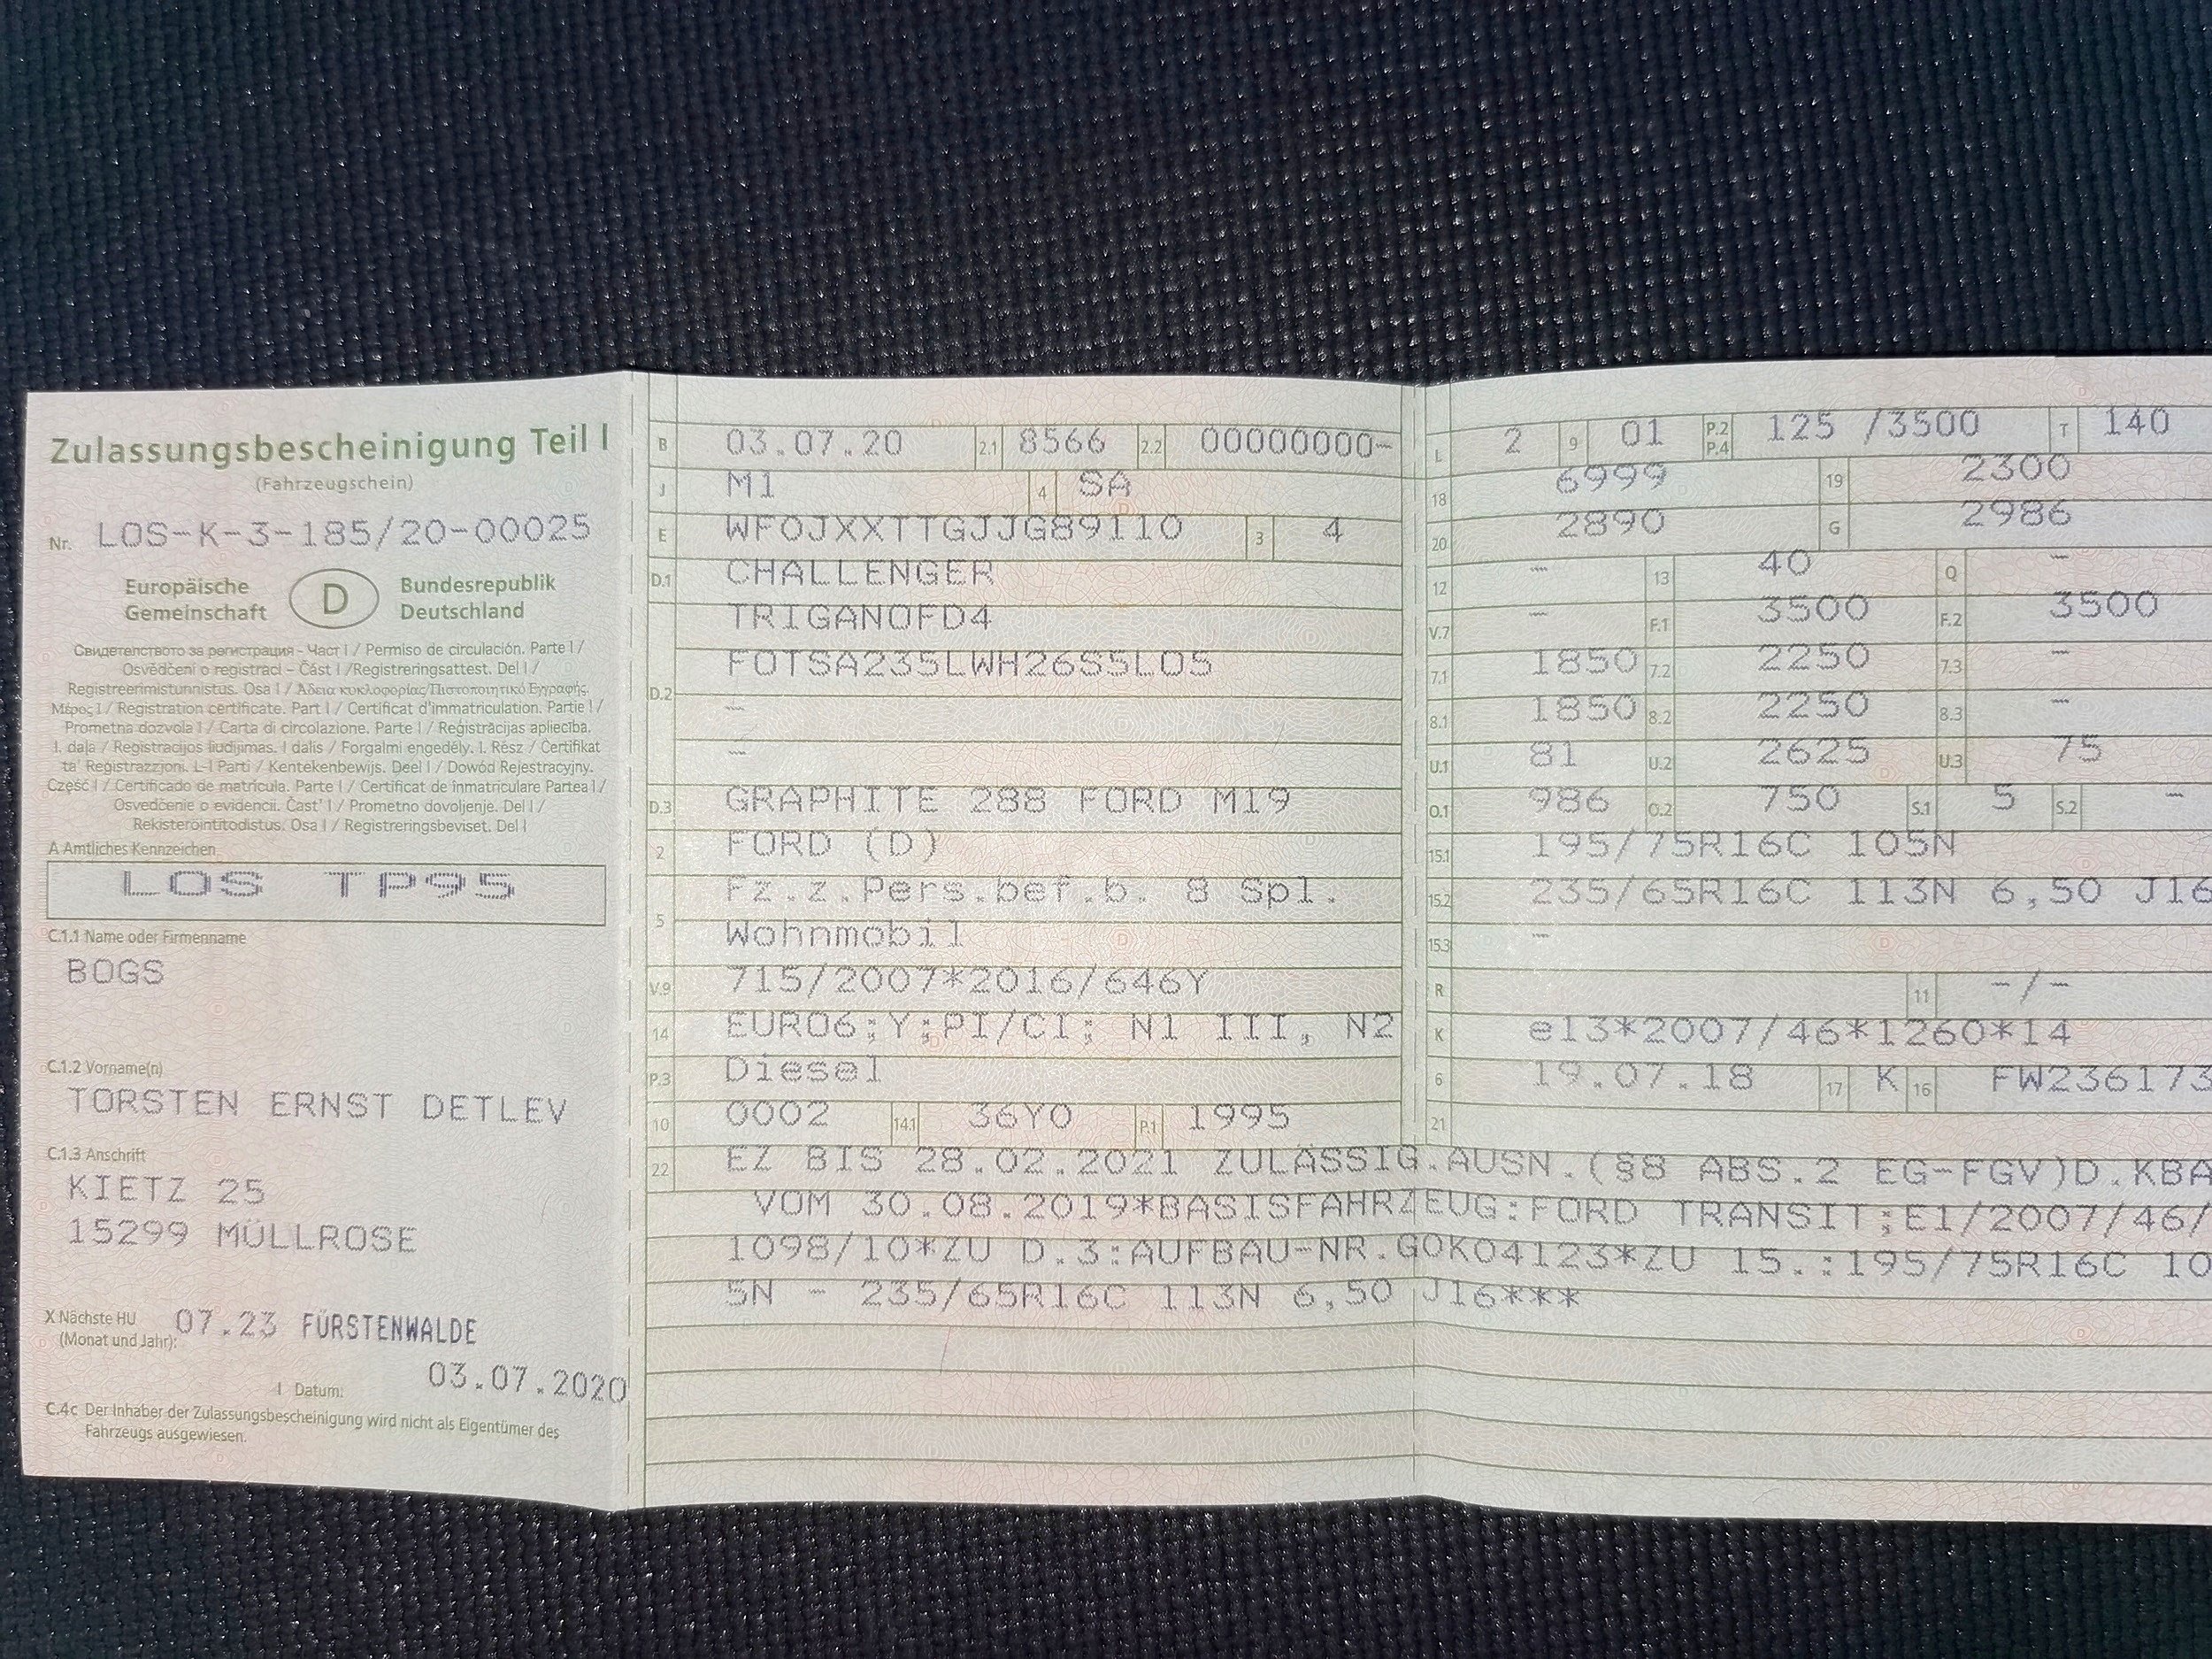 Zulassungsbescheinigung Teil I
(Fahrzeugschein)
Nr. LOS-K-3-185/20-00025
Europäische Gemeinschaft D Bundesrepublik Deutschland
Свидетелството за регистрация - Част I / Permiso de circulación. Parte I /
Osvědčení o registraci – Část I / Registreringsattest. Del I /
Registreerimistunnistus. Osa I / Άδεια κυκλοφορίας/Πιστοποιητικό Εγγραφής.
Μέρος I / Registration certificate. Part I / Certificat d'immatriculation. Partie I /
Prometna dozvola I / Carta di circolazione. Parte I / Reģistrācijas apliecība.
I. daļa / Registracijos liudijimas. I dalis / Forgalmi engedély. I. Rész / Ċertifikat
ta' Reġistrazzjoni. L-I Parti / Kentekenbewijs. Deel I / Dowód Rejestracyjny.
Część I / Certificado de matrícula. Parte I / Certificat de înmatriculare Partea I /
Osvedčenie o evidencii. Časť I / Prometno dovoljenje. Del I /
Rekisteröintitodistus. Osa I / Registreringsbeviset. Del I
A Amtliches Kennzeichen
LOS TP95
C.1.1 Name oder Firmenname
BOGS
C.1.2 Vorname(n)
TORSTEN ERNST DETLEV
C.1.3 Anschrift
KIETZ 25
15299 MÜLLROSE
X Nächste HU (Monat und Jahr): 07.23 FÜRSTENWALDE
I Datum: 03.07.2020
C.4c Der Inhaber der Zulassungsbescheinigung wird nicht als Eigentümer des
Fahrzeugs ausgewiesen.
B 03.07.20 2.1 8566 2.2 00000000-
J M1 4 SA
E WF0JXXTTGJJG89110 3 4
D.1 CHALLENGER
TRIGANOFD4
D.2 FOTSA235LWH26S5L05
-
-
D.3 GRAPHITE 288 FORD M19
2 FORD (D)
5 Fz.z.Pers.bef.b. 8 Spl.
Wohnmobil
V.9 715/2007*2016/646Y
14 EURO6;Y;PI/CI; N1 III, N2
P.3 Diesel
10 0002 14.1 36Y0 P.1 1995
L 2 9 01 P.2 P.4 125 /3500 T 140
18 6999 19 2300
20 2890 G 2986
12 - 13 40 Q -
V.7 - F.1 3500 F.2 3500
7.1 1850 7.2 2250 7.3 -
8.1 1850 8.2 2250 8.3 -
U.1 81 U.2 2625 U.3 75
O.1 986 O.2 750 S.1 5 S.2 -
15.1 195/75R16C 105N
15.2 235/65R16C 113N 6,50 J16
15.3 -
R 11 -/-
K e13*2007/46*1260*14
6 19.07.18 17 K 16 FW236173
21
22 EZ BIS 28.02.2021 ZULÄSSIG.AUSN.(§8 ABS.2 EG-FGV)D.KBA
VOM 30.08.2019*BASISFAHRZEUG:FORD TRANSIT;E1/2007/46/
1098/10*ZU D.3:AUFBAU-NR.G0K04123*ZU 15.:195/75R16C 10
5N - 235/65R16C 113N 6,50 J16***